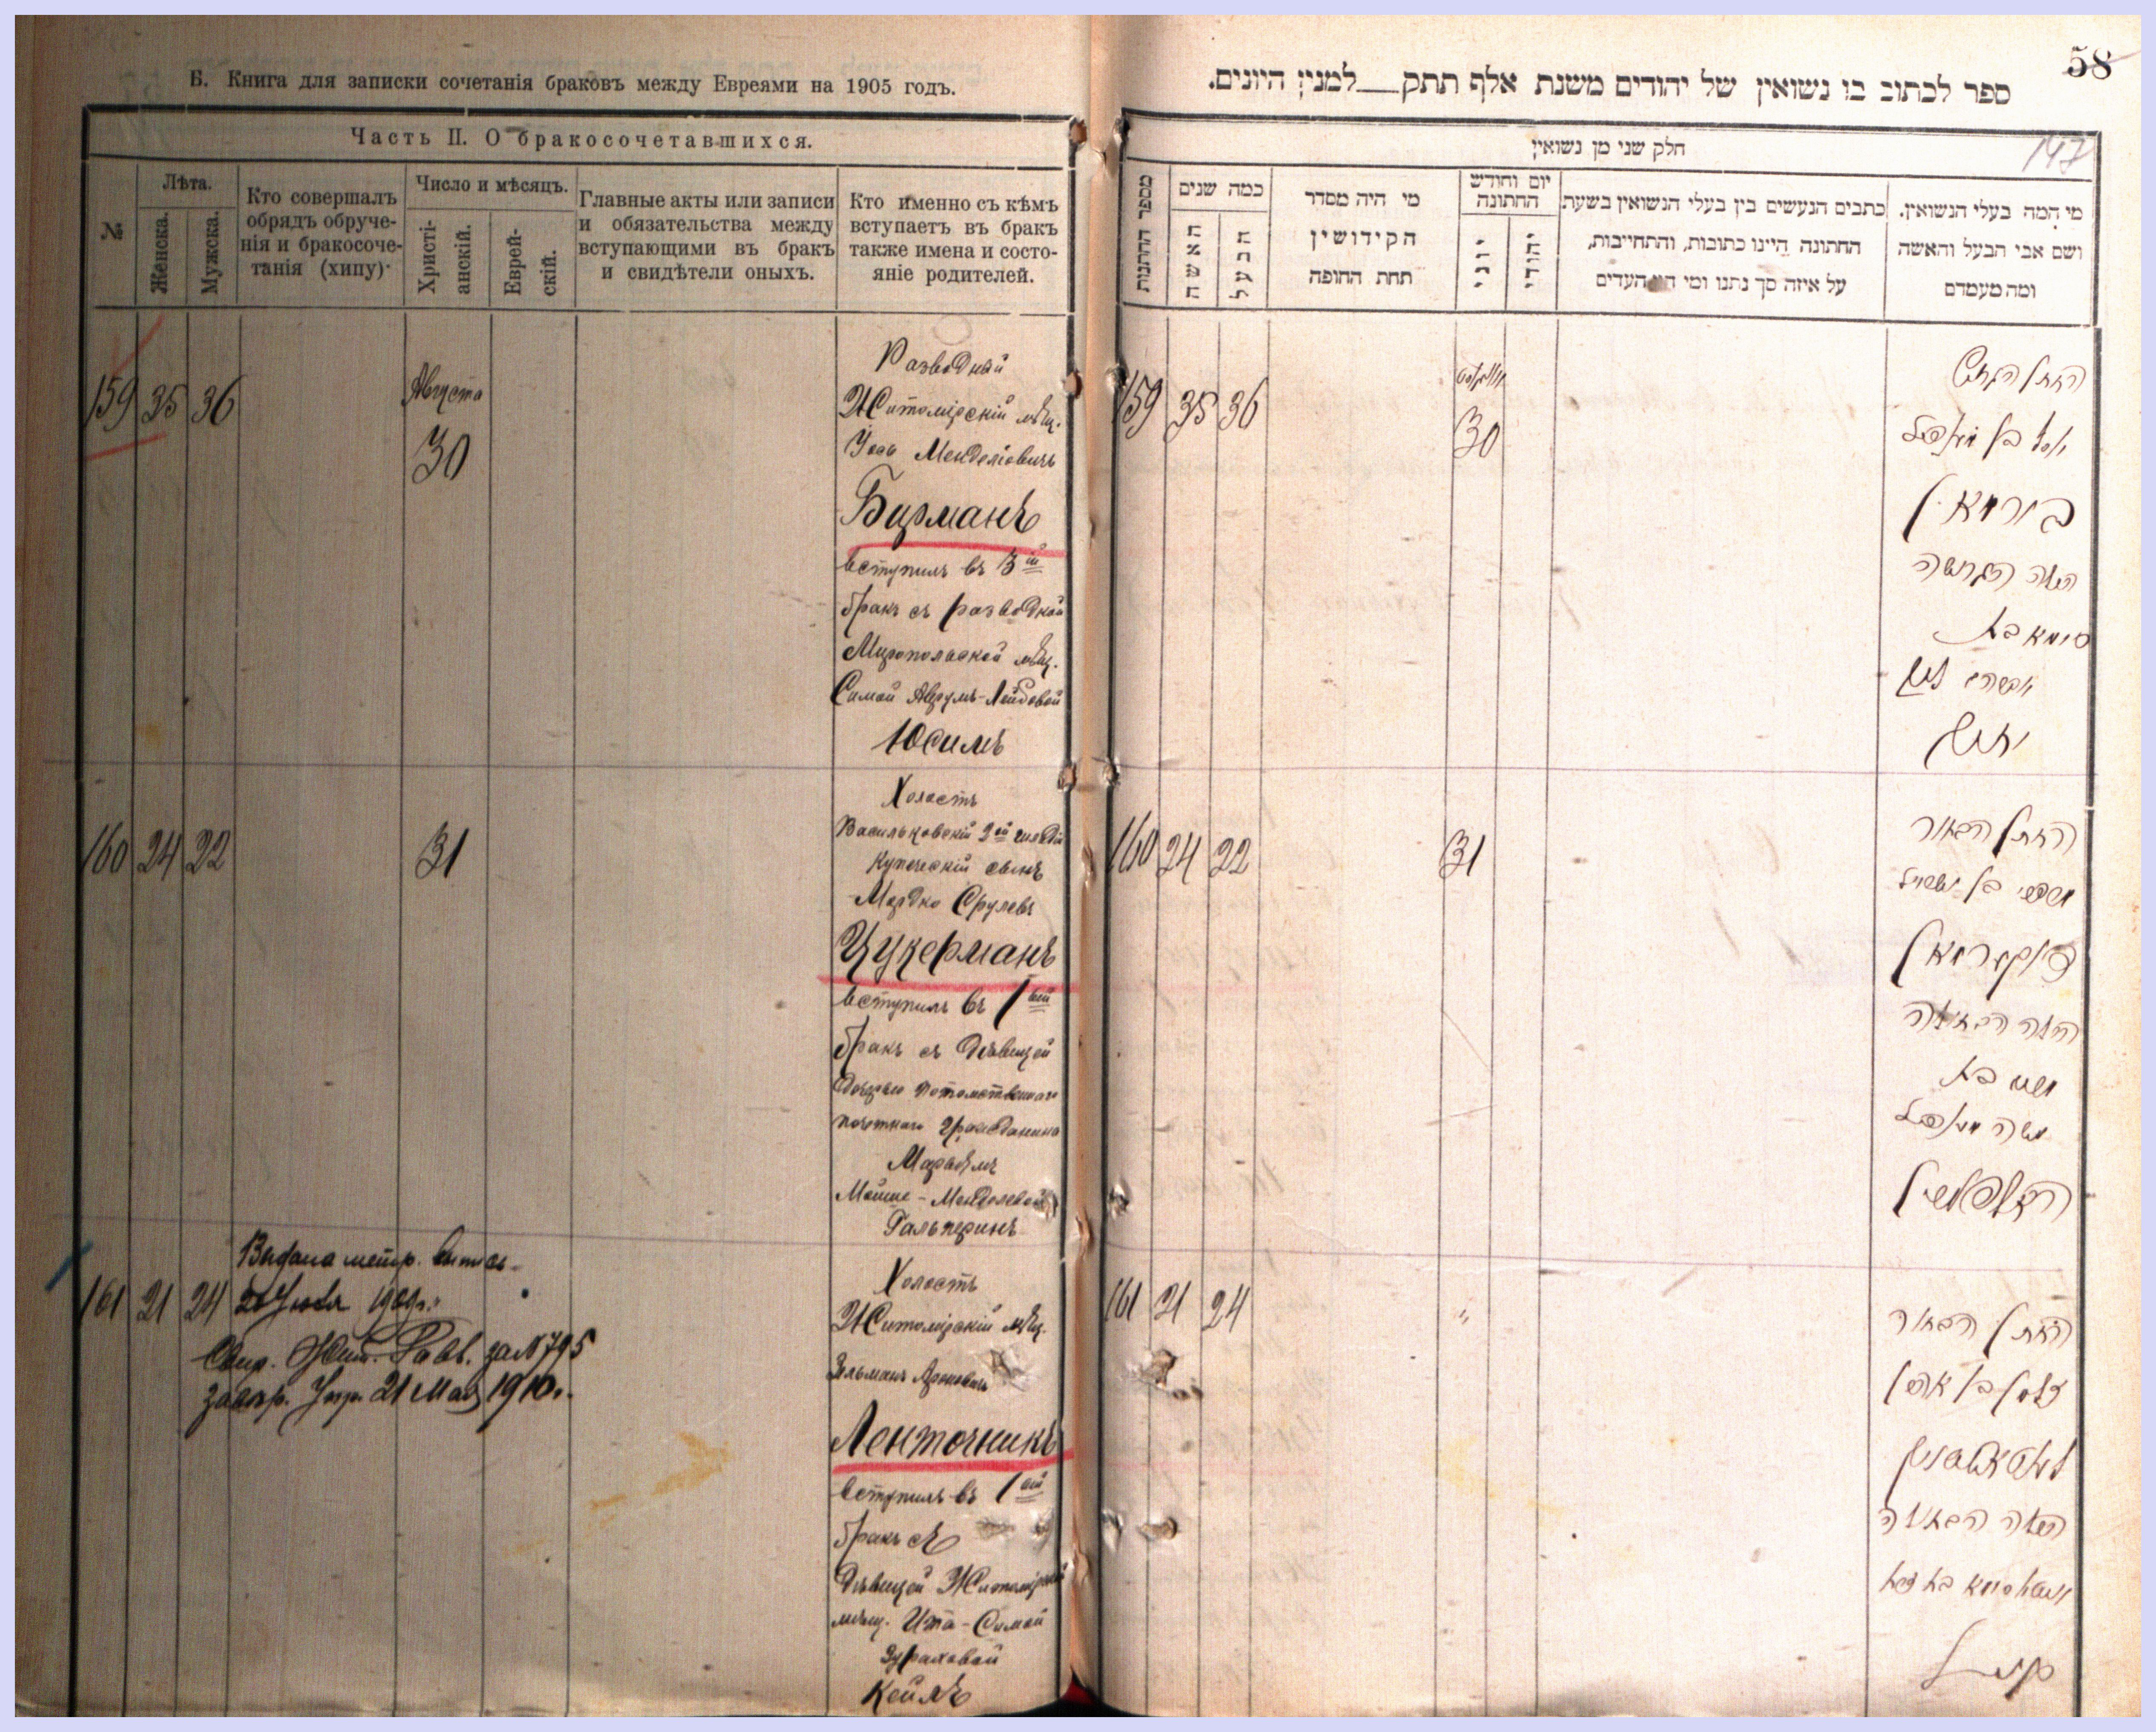 Б. Книга для записки сочетанія браковъ между Евреями на 1905 годъ.
Часть II. О бракосочетавшихся.
№
Лѣта.
Женска.
Мужска.
Кто совершалъ
обрядъ обруче-
нія и бракосоче-
танія (хипу)
Число и мѣсяцъ.
Христі-
анскій.
Еврей-
скій.
Главные акты или записи
и обязательства между
вступающими въ бракъ
и свидѣтели оныхъ.
Кто именно съ кѣмъ
вступаетъ въ бракъ
также имена и состо-
яніе родителей.
159 35 36
Августа
30
Разводный
Житомірскій мѣщ.
Менделіовичъ
Бурманъ
вступилъ въ 3ій
бракъ съ разводкой
Миропольской мѣщ.
Симой Аврумъ-Лейбовой
Юсимъ
160 24 22
31
Холостъ
Васильковскій 2ой гильдіи
Купеческій сынъ
Мордко Срулевъ
Цукерманъ
вступилъ въ 1ый
бракъ съ дѣвицей
дочерью потомственнаго
почетнаго гражданина
Марьямъ
Мойше-Менделевой
Гальперинъ
161 21 24
Выдана метр. выпись
1909г.
Житом. Равв. за №795
21 Мая 1910г.
Холостъ
Житомірскій мѣщ.
Зельманъ Ароновичъ
Ленточникъ
вступилъ въ 1ый
бракъ съ
дѣвицей Житомірской
мѣщ. Ита-Симой
Зураховой
Кейлъ
58
147
ספר לכתוב בו נשואין של יהודים משנת אלף תתק למנין היונים.
חלק שני מן נשואין
מספר החתנות
כמה שנים
האשה
הבעל
מי היה מסדר
הקידושין
תחת החופה
יום וחודש
החתונה
יוני
יהודי
כתבים הנעשים בין בעלי הנשואין בשעת
החתונה היינו כתובות, והתחייבות,
על איזה סך נתנו ומי היו העדים
מי המה בעלי הנשואין.
ושם אבי הבעל והאשה
ומה מעמדם
159 35 36
אווגוסט
30
החתן הגרוש
יוסף בן מענדיל
בורמאן
הכלה הגרושה
סימא בת
אברהם ליב
יוסים
160 24 22
31
החתן הבחור
מרדכי בן ישראל
צוקערמאן
הכלה הבתולה
מרים בת
משה מענדיל
האלפערין
161 21 24
"
החתן הבחור
זלמן בן אהרן
לענטאטשניק
הכלה הבתולה